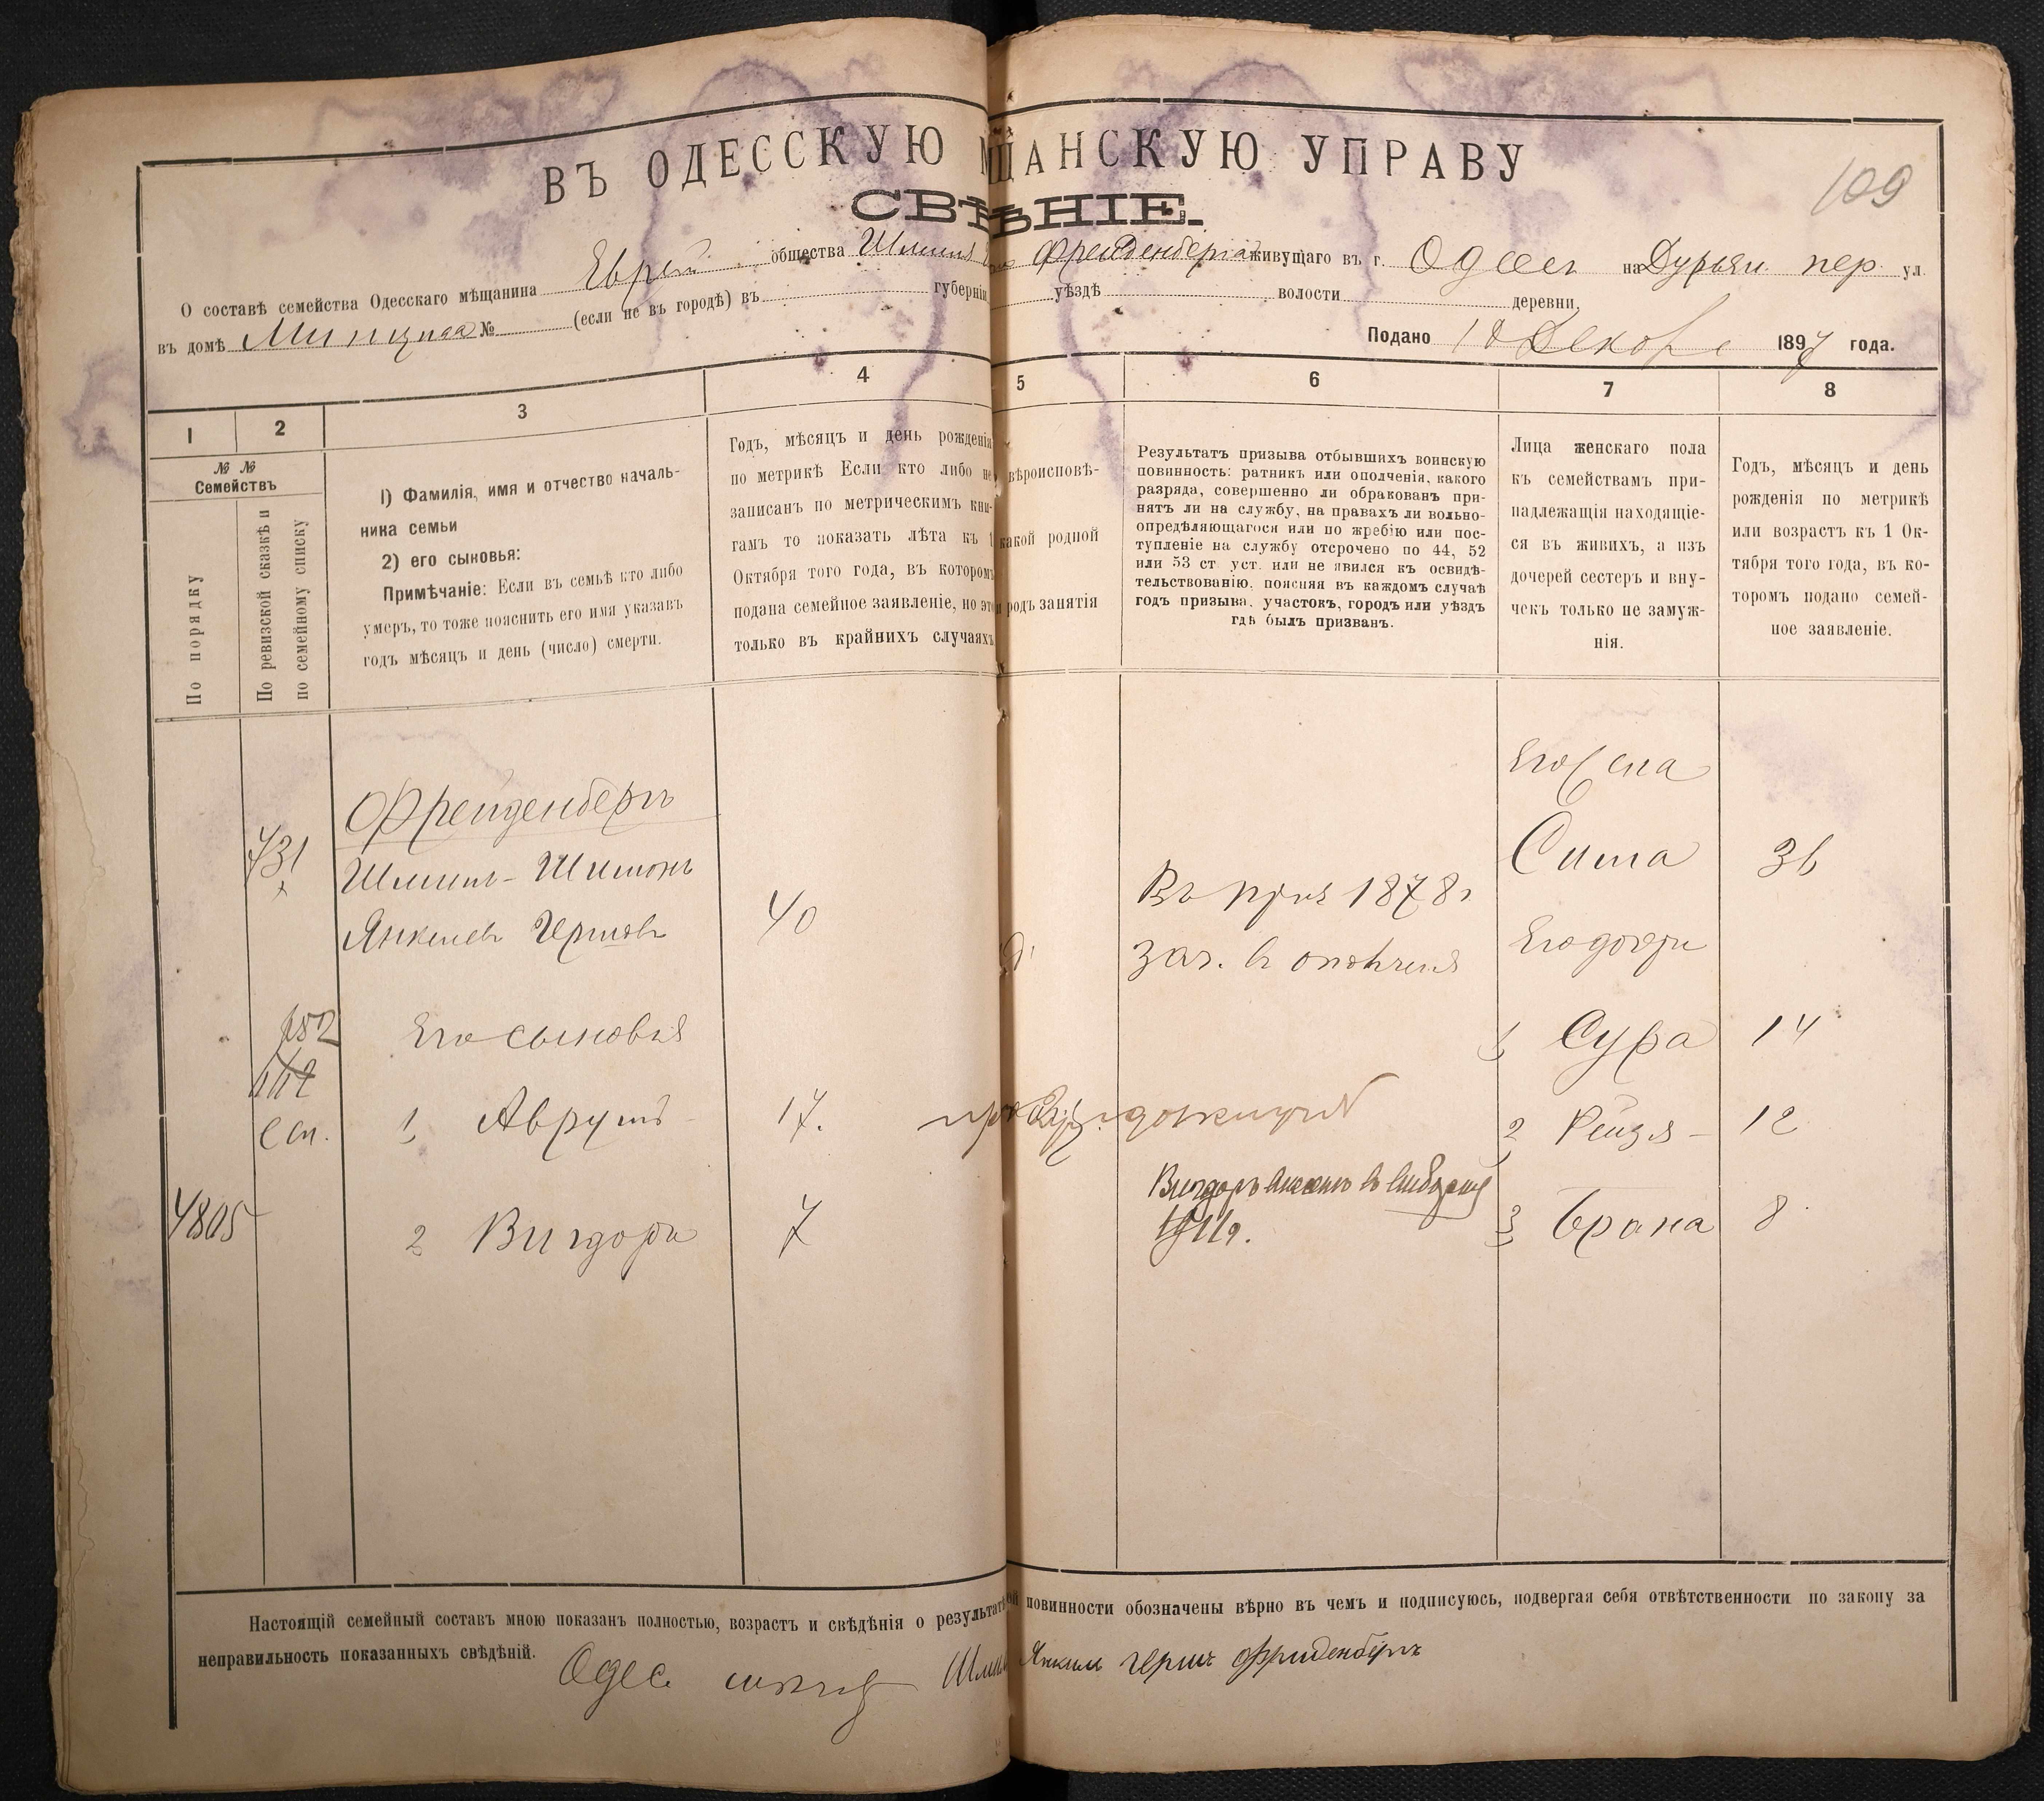 109
ВЪ ОДЕССКУЮ ЩАНСКУЮ УПРАВУ
СВѢ ѢНІЕ.
О составѣ семейства Одесскаго мѣщанина Еврей общества Шмиля Фрейденберга живущаго въ г. Одессе на Дурьян. пер. ул.
въ домѣ № (если не въ городѣ) въ губерніи уѣздѣ волости деревни,
Подано 10 Декабр 1897 года.
1 2 3 4 5 6 7 8
№ № Семействъ
По порядку
По ревизской сказкѣ и
по семейному списку
1) Фамилія, имя и отчество началь-
ника семьи
2) его сыновья:
Примѣчаніе: Если въ семьѣ кто либо
умеръ, то тоже пояснить его имя указавъ
годъ мѣсяцъ и день (число) смерти.
Годъ, мѣсяцъ и день рожденія
по метрикѣ Если кто либо не
записанъ по метрическимъ кни-
гамъ то показать лѣта къ 1
Октября того года, въ которомъ
подана семейное заявленіе, но это
только въ крайнихъ случаяхъ
вѣроисповѣ-
какой родной
родъ занятія
Результатъ призыва отбывшихъ воинскую
повинность: ратникъ или ополченія, какого
разряда, совершенно ли обракованъ при-
нятъ ли на службу, на правахъ ли вольно-
опредѣляющагося или по жребію или пос-
тупленіе на службу отсрочено по 44, 52
или 53 ст уст. или не явился къ освидѣ-
тельствованію, поясняя въ каждомъ случаѣ
годъ призыва, участокъ, городъ или уѣздъ
гдѣ былъ призванъ.
Лица женскаго пола
къ семействамъ при-
надлежащія находящіе-
ся въ живихъ, а изъ
дочерей сестеръ и вну-
чекъ только не замуж-
нія.
Годъ, мѣсяцъ и день
рожденія по метрикѣ
или возрастъ къ 1 Ок-
тября того года, въ ко-
торомъ подано семей-
ное заявленіе.
Его жена
Фрейденбергъ
731 Шмиль-Шимонъ
Сима 36
Янкелевъ Гершовъ 40
Въ 1878 г.
зач. в ополченія
Его дочери
Его сыновья
1, Сура 14
сп. 1, Аврумъ 17.
2, Рейзя 12
4805 2 Вигдоръ 7
Вигдоръ внесенъ в
1911 г.
3, Брана 8
Настоящій семейный составъ мною показанъ полностью, возрастъ и свѣдѣнія о результатѣ ой повинности обозначены вѣрно въ чемъ и подписуюсь, подвергая себя отвѣтственности по закону за
неправильность показанныхъ свѣдѣній. Одес. Янкель Герш Фриденбергъ